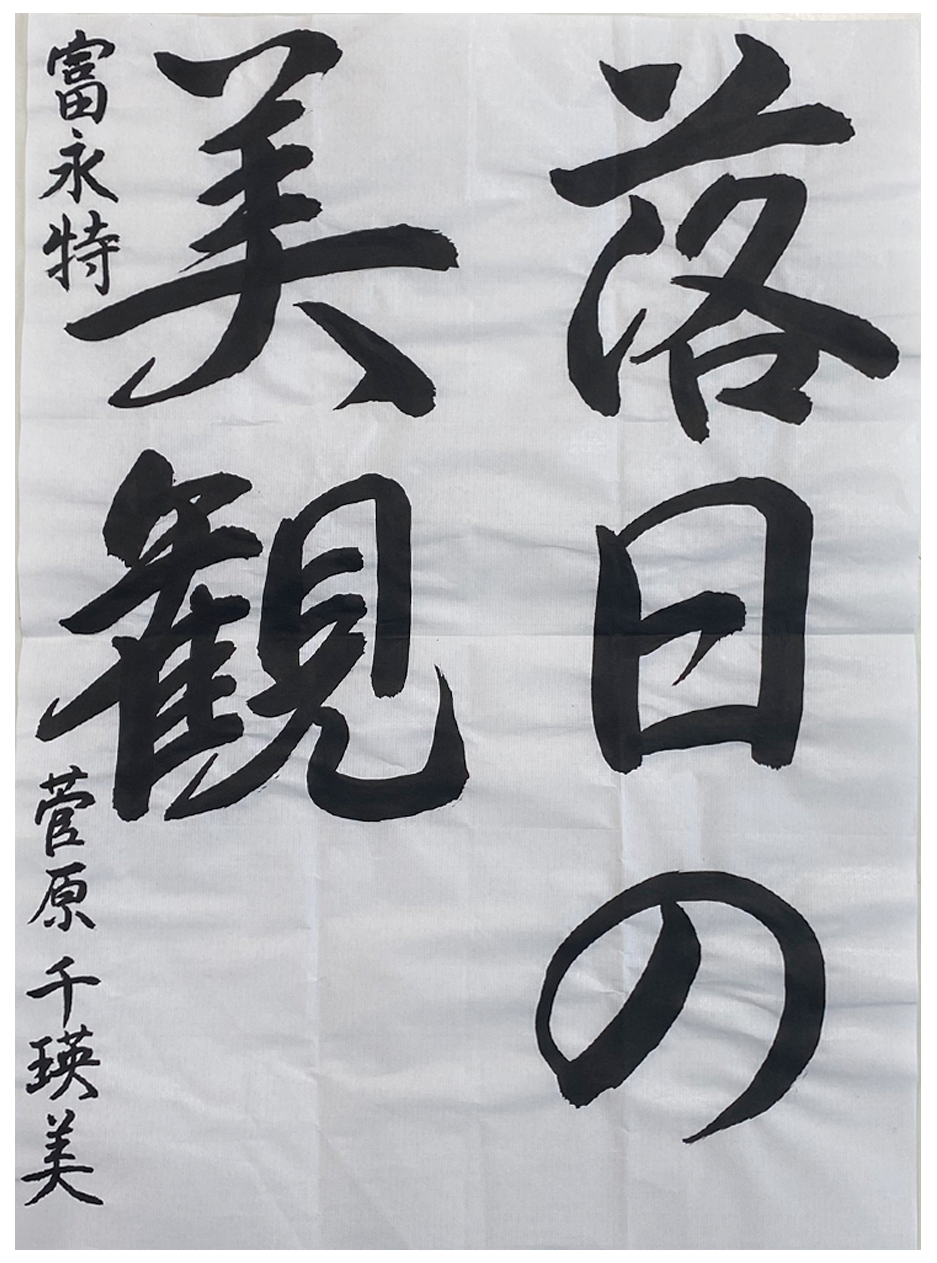 落日の
美観
富永特 菅原 千瑛美